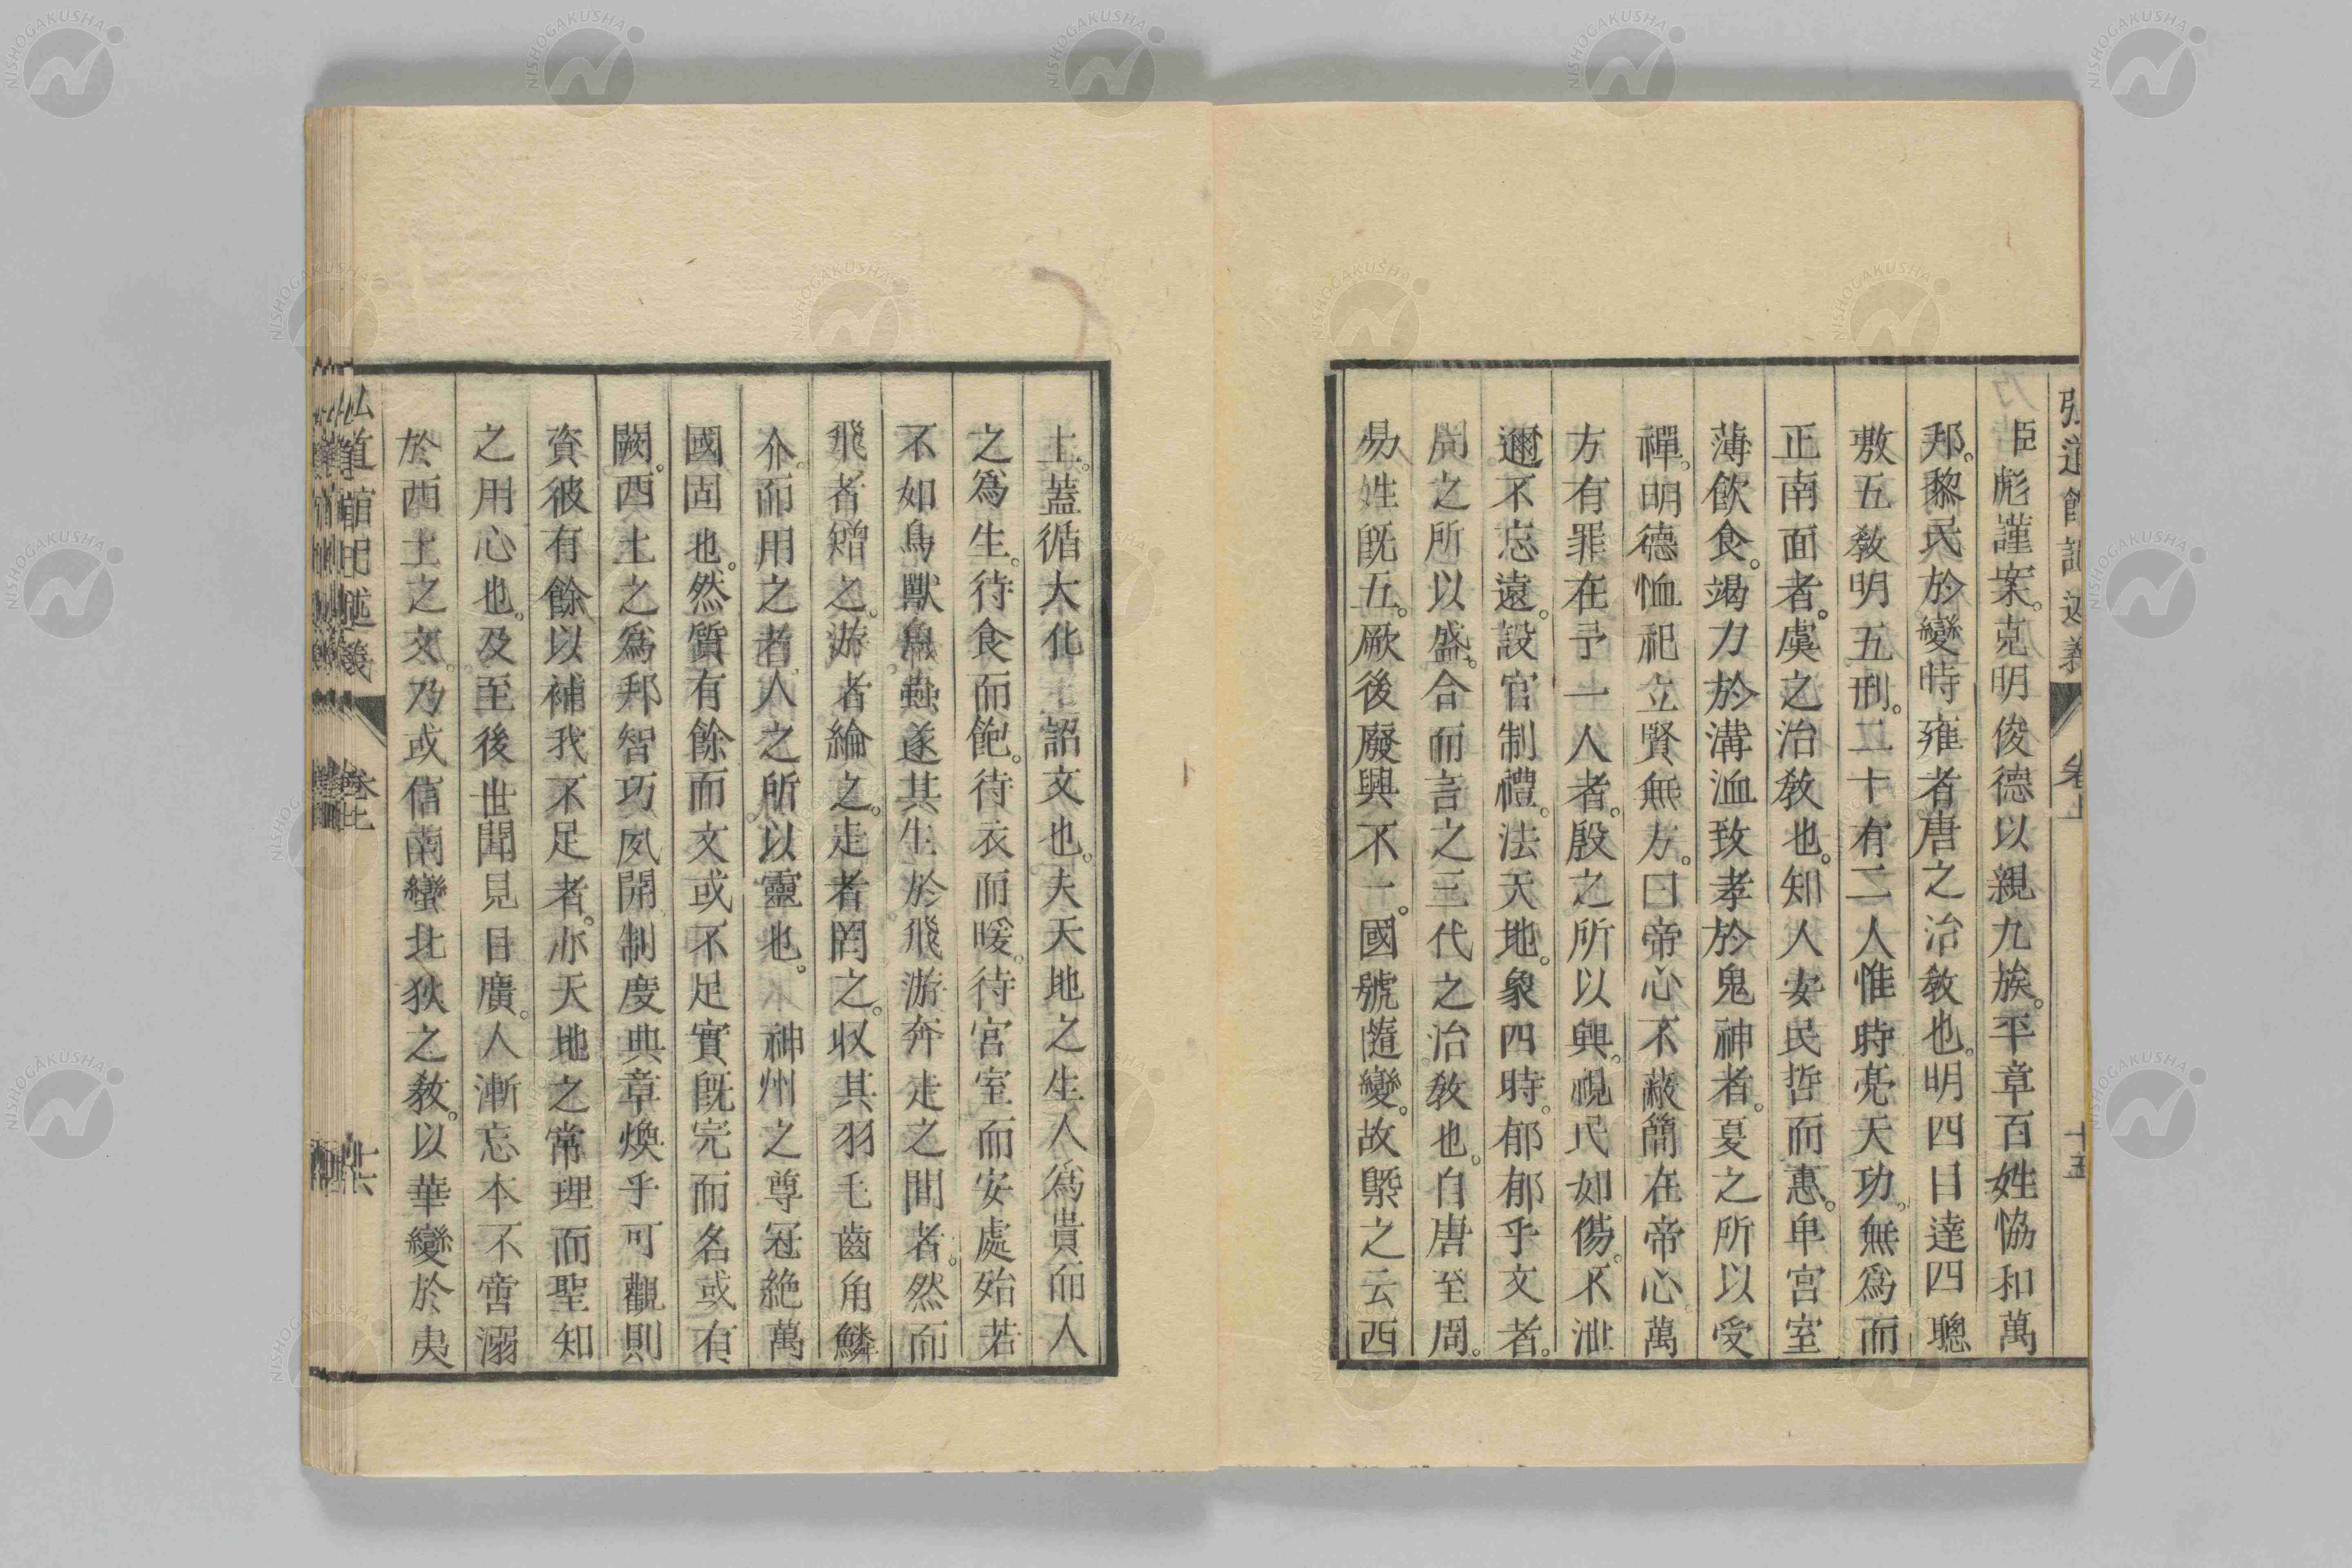 弘道館記述義 卷上 十五
臣彪謹案。克明俊德以親九族。平章百姓恊和萬
邦。黎民於變時雍者。唐之治敎也。明四目達四聰
敷五敎明五刑。二十有二人惟時亮天功。無爲而
正南面者。虞之治敎也。知人安民哲而惠。卑宮室
薄飮食。竭力於溝洫致孝於鬼神者。夏之所以受
禪。明德恤祀立賢無方。曰帝心不蔽簡在帝心。萬
方有罪在予一人者。殷之所以興。視民如傷。不泄
邇不忘遠。設官制禮。法天地。象四時。郁郁乎文者。
周之所以盛。合而言之三代之治敎也。自唐至周。
易姓旣五。厥後廢興不一。國號隨變。故槩之云西
土。蓋循大化 詔文也。夫天地之生人爲貴而人
之爲生。待食而飽。待衣而暖。待宮室而安處殆若
不如鳥獸魚蟲遂其生於飛游奔走之間者。然而
飛者矰之。游者綸之。走者罔之。収其羽毛齒角鱗
介。而用之者。人之所以靈也。 神州之尊冠絶萬
國固也。然質有餘而文或不足實旣完而名或有
闕。西土之爲邦智巧夙開制度典章煥乎可觀則
資彼有餘以補我不足者。亦天地之常理而聖知
之用心也。及至後世聞見日廣。人漸忘本不啻溺
於西土之文。乃或信南蠻北狄之敎。以華變於夷
弘道館記述義